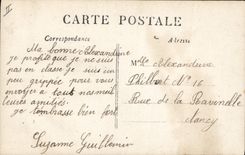 II
CARTE POSTALE
Correspondance
Adresse
Ma bonne Alexandrine
Je profite que je ne suis
pas en classe je suis un
peu grippée pour vous
envoyer à tout
leurs amitiés.
Je t'embrasse bien fort
Suzanne Guillemin
Mlle Alexandrine
Philbert No 16
Rue de la
Nancy